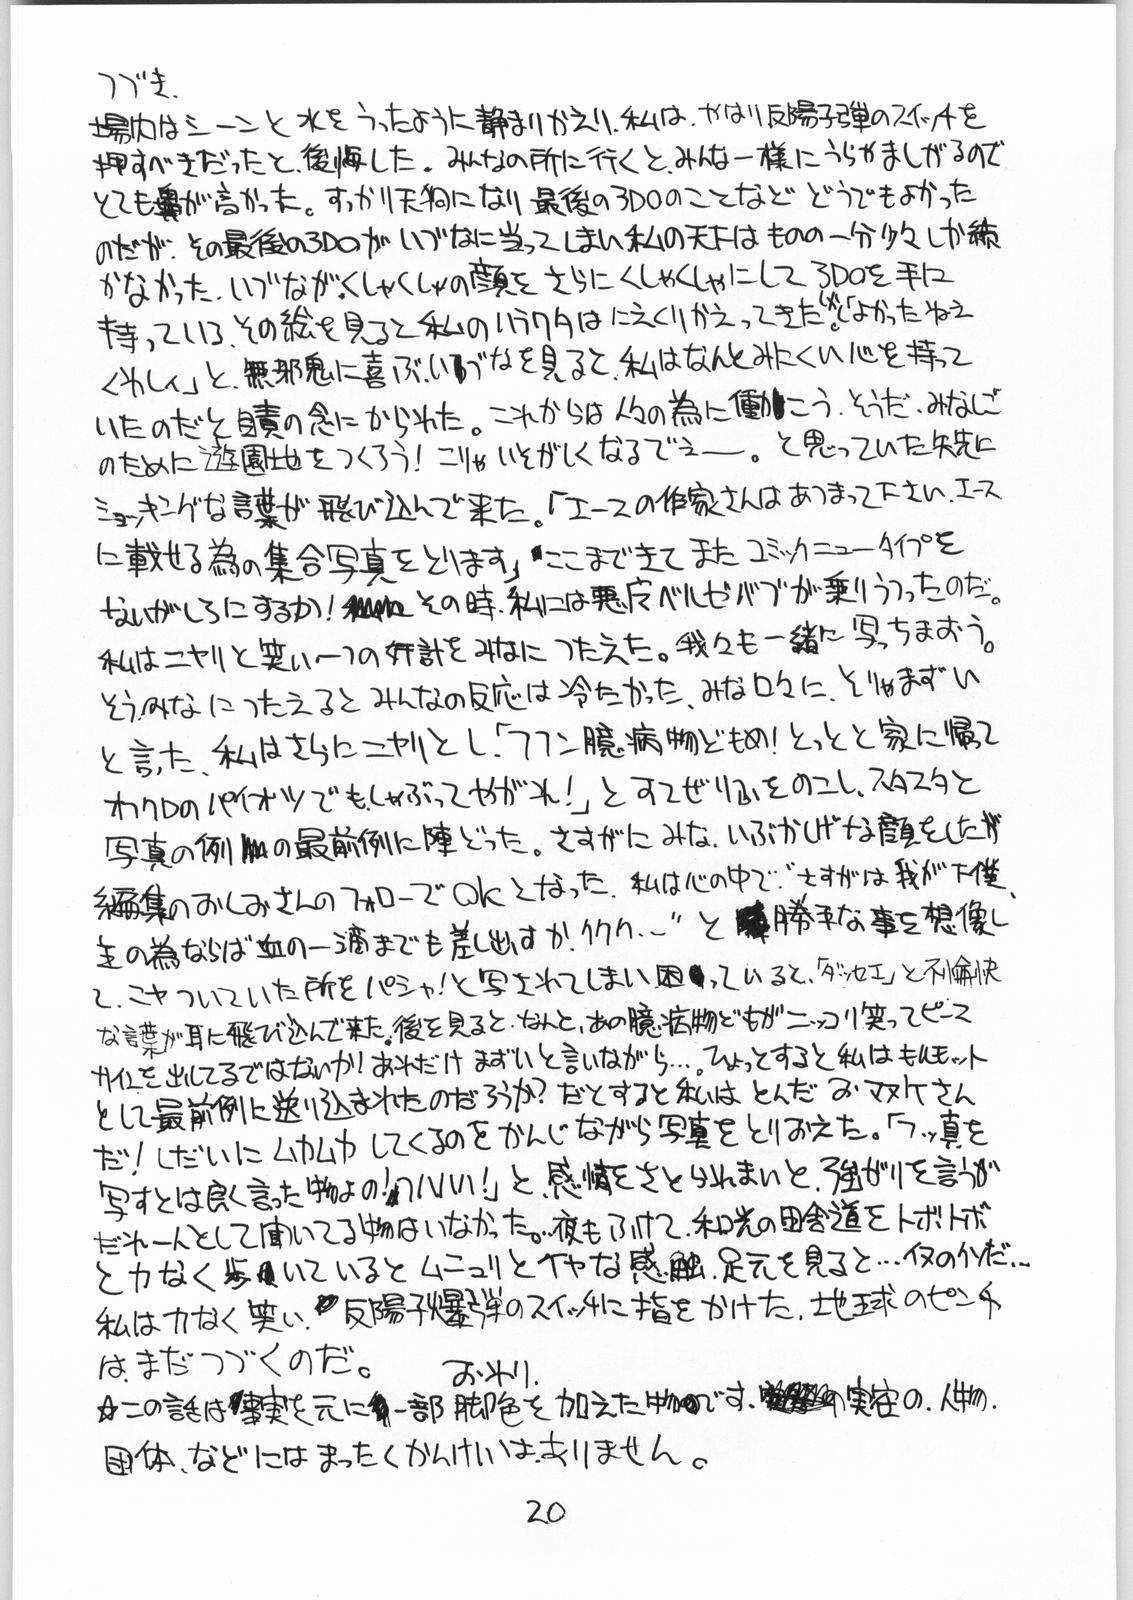 つづき.
場内はシーンと水をうったように静まりかえり、私は、やはり反陽子弾のスイッチを
押すべきだったと、後悔した。みんなの所に行くと、みんな一様にうらやましがるので
とても鼻が高かった。すっかり天狗になり最後の3DOのことなどどうでもよかった
のだが、その最後の3DOがいづなに当ってしまい私の天下はものの一分少々しか続
かなかった、いづながくしゃくしゃの顔をさらにくしゃくしゃにして3DOを手に
持っている、その絵を見ると私のハラワタはにえくりかえってきたが!「よかったねえ
くわしィ」と、無邪鬼に喜ぶ、いづなを見ると、私はなんとみにくい心を持って
いたのだと自責の念にかられた。これからは人々の為に働こう、そうだ、みなしご
のために遊園地をつくろう!こりゃいそがしくなるでえー。と思っていた矢先に
ショッキングな言葉が飛び込んで来た。「エースの作家さんはあつまって下さい、エース
に載せる為の集合写真をとります」ここまできてまたコミックニュータイプを
ないがしろにするか!その時、私には悪魔ベルゼバブが乗りうつったのだ。
私はニヤリと笑い一つの奸計をみなにつたえた。我々も一緒に写っちまおう。
そうみなにつたえるとみんなの反応は冷たかった、みな口々に、そりゃまずい
と言った、私はさらにニヤリとし、「フフン臆病物どもめ!とっとと家に帰って
オフクロのパイオツでもしゃぶってやがれ!」とすてぜりふをのこし、スタスタと
写真の例の最前例に陣どった。さすがにみな、いぶかしげな顔をしたが
編集のおしおさんのフォローでOKとなった、私は心の中で、"さすがは我が下僕、
主の為ならば血の一滴までも差し出すか、ククク…"と勝手な事を想像し
て、ニヤついていた所をパシャ!と写されてしまい、困っていると、「ダッセェ」と不愉快
な言葉が耳に飛び込んで来た。後を見ると、なんと、あの臆病物どもがニッコリ笑ってピース
サインを出してるではないか!あれだけまずいと言いながら…。ひょっとすると私はもルモット
として最前例に送り込まれたのだろうか?だとすると私はとんだおマヌケさん
だ!しだいにムカムカしてくるのをかんじながら写真をとりおえた。「フッ真を
写すとは良く言った物よの!ハハハ!」と、感情をさとられまいと、強がりを言うが
だれ一人として聞いてる物はいなかった。夜もふけて、和光の田舎道をトボトボ
と力なく歩いているとムニュリとイヤな感触、足元を見ると…イヌのクソだ…
私は力なく笑い、反陽子爆弾のスイッチに指をかけた、地球のピンチ
は、まだつづくのだ。
おわり.
☆この話は事実を元に一部脚色を加えた物です、実在の、人物、
団体、などにはまったくかんけいは、ありません。
20